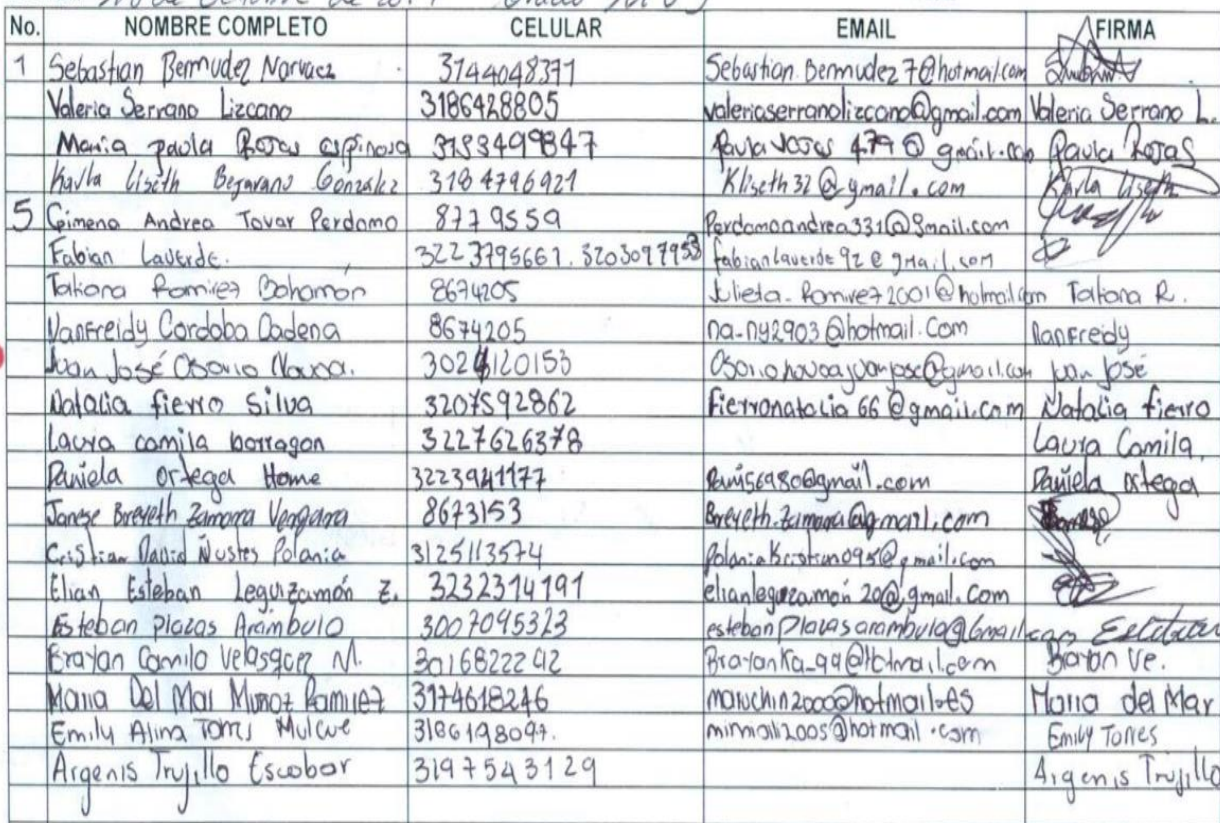 de Octubre de
No. NOMBRE COMPLETO CELULAR EMAIL FIRMA
1 Sebastian Bermudez Narvaez 3144048371 Sebastian.Bermudez7@hotmail.com
Valeria Serrano Lizcano 3186428805 valeriaserranolizcano@gmail.com Valeria Serrano L.
Maria paula Rojas espinosa 3183499847 Paula rojas 479@gmail.com Paula Rojas
Karla Liseth Bejarano Gonzalez 3184796921 Kliseth32@gmail.com Karla Liseth
5 Gimena Andrea Tovar Perdomo 8779559 Perdomoandrea331@gmail.com
Fabian Laverde. 3223795661. 3203097953 fabianlaverde92@gmail.com
Tatiana Ramirez Bahamon 8674205 Julieta-Ramirez2001@hotmail.com Tatiana R.
Nanfreidy Cordoba Cadena 8674205 na-ny2903@hotmail.Com Nanfreidy
Juan José Osorio Novoa. 3024120153 Osorionovoajuanjose@gmail.com Juan José
Natalia fierro Silva 3207592862 fierronatalia66@gmail.com Natalia fierro
Laura camila borragon 3227626378 Laura Camila.
Daniela ortega Home 3223941177 Daniela ortega
Janese Breyeth Zamora Vergara 8673153 Breyeth.Zamora@gmail.com
Cristian David Ñustes Polania 3125113574
Elian Esteban Leguizamón Z. 3232314191 elianleguzamón20@gmail.com
Esteban Plazas Arambulo 3007095323 estebanPlazasarambulo@Gmail.com Esteban
Brayan Camilo Velasquez M. 3016822292 Brayanka_99@Hotmail.com Brayan Ve.
Maria Del Mar Munoz Ramirez 3174618246 maruchin2000@hotmail.es Maria del Mar
Emily Alina Torres Mulcue 3186198097. minniali2005@hotmail.com Emily Torres
Argenis Trujillo Escobar 3197543129 Argenis Trujillo